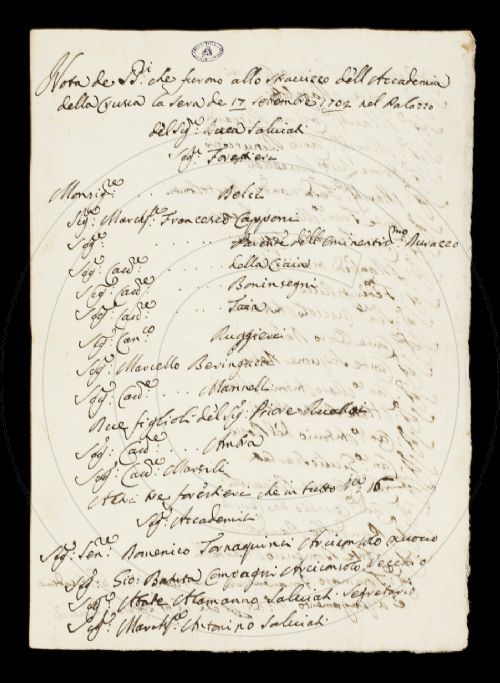 Nota de SS.ri che furono allo stravizzo dell'Accademia
della Crusca la sera de 17 settembre 1702 nel Palazzo
del Sig.r Duca Salviati
Sig.ri Forestieri
Monsig.re . . . Belci
Sig.re March.se Francesco Capponi
Sig.re . . . . Parente dell'Eminentis.mo Durazzo
Sig.r Cav.re . . . . della Ciaia
Sig.r Cav.re . . . . Boninsegni
Sig.r Cav.re . . . .
Sig.r Can.co Ruggieri
Sig.r Marcello
Sig.r Cav.re . . . Mannelli
Due figlioli del Sig.r Priore Rucellai
Sig.r Cav.re . . . .
Sig.r Cav.re Marsili
Altri tre forestieri che in tutto 16
Sig.ri Accademici
Sig.r Sen.re Domenico Tornaquinci Arciconsolo nuovo
Sig.r Gio: Batista Compagni Arciconsolo Vecchio
Sig.r Abate Alamanno Salviati Segretario
Sig.r March.se Antonino Salviati